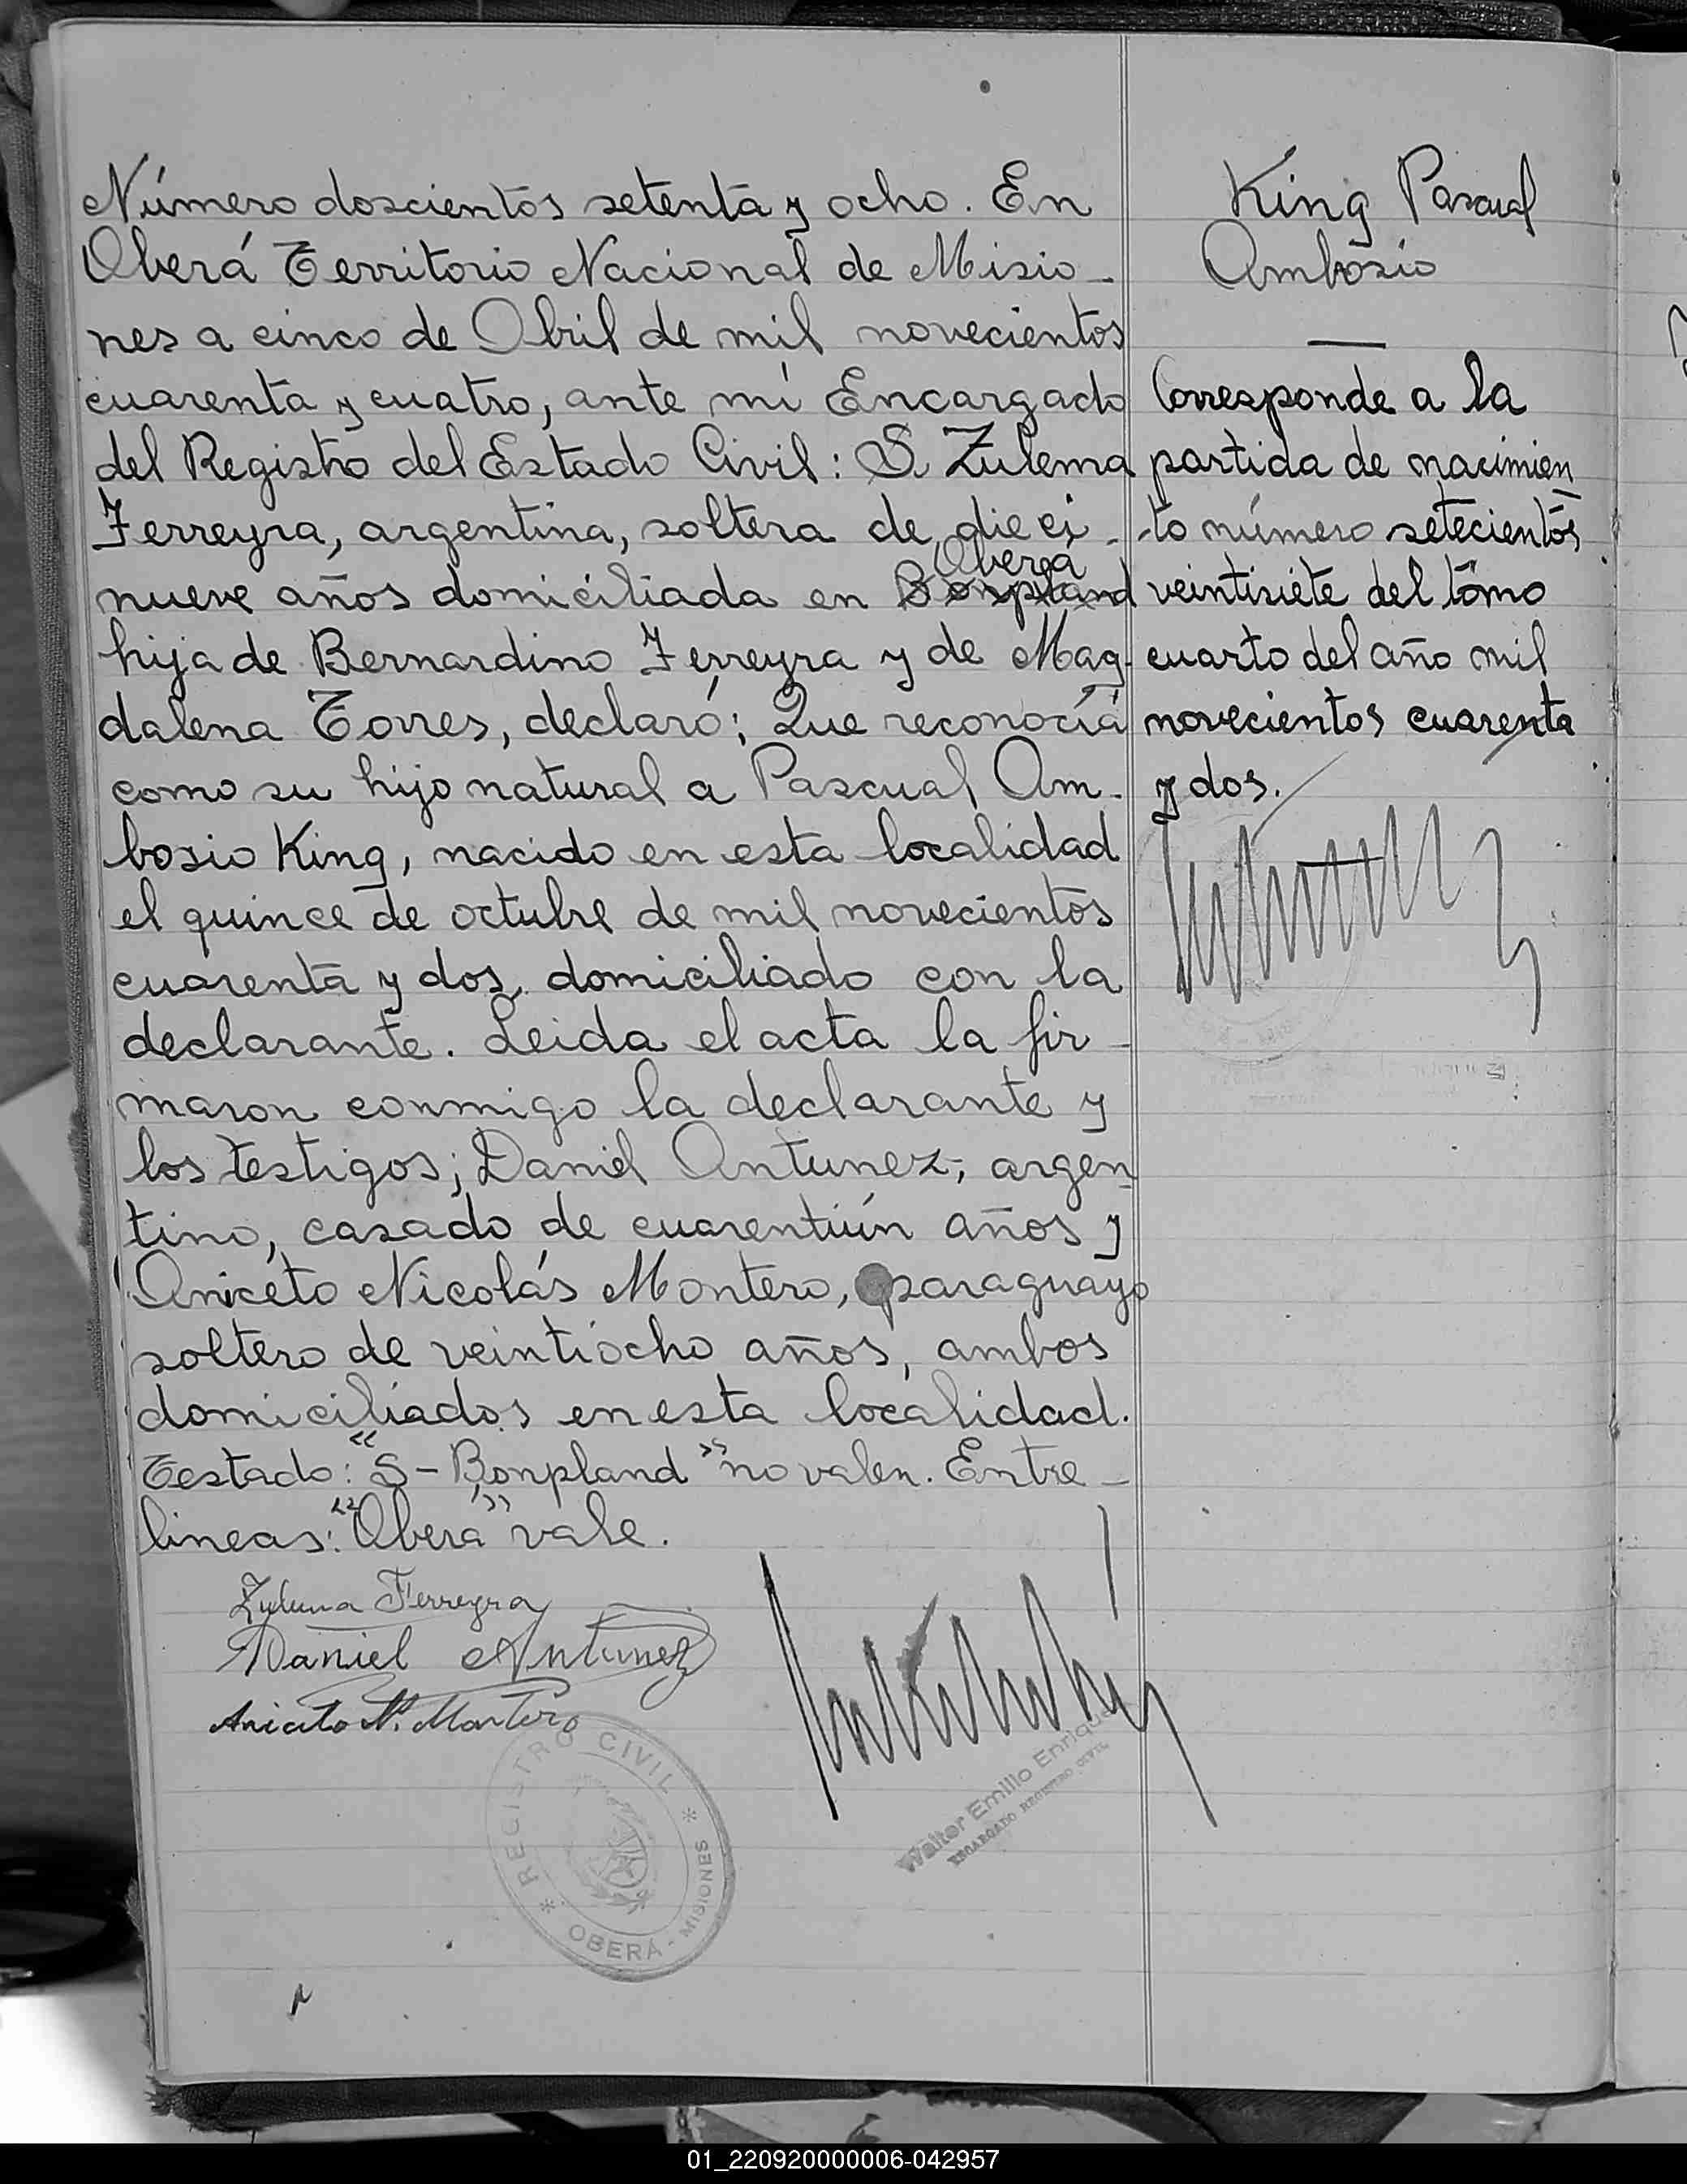 Número doscientos setenta y ocho. En
Oberá Territorio Nacional de Misio-
nes a cinco de Abril de mil novecientos
cuarenta y cuatro, ante mí Encargado
del Registro del Estado Civil: S. Zulema
Ferreyra, argentina, soltera de dieci-
Oberá
nueve años domiciliada en Bonpland
hija de Bernardino Ferreyra y de Mag-
dalena Torres, declaró: Que reconocía
como su hijo natural a Pascual Am-
bosio King, nacido en esta localidad
el quince de octubre de mil novecientos
cuarenta y dos, domiciliado con la
declarante. Leida el acta la fir-
maron conmigo la declarante y
los testigos; Daniel Antunez, argen-
tino, casado de cuarentiún años y
Aniceto Nicolás Montero, paraguayo
soltero de veintiocho años, ambos
domiciliados en esta localidad.
Testado: "S - Bonpland" no valen. Entre-
lineas: "Oberá" vale.
Zulema Ferreyra
Daniel Antunez
Aniceto N. Montero
REGISTRO CIVIL
OBERÁ - MISIONES
Walter Emilio Enrique
ENCARGADO REGISTRO CIVIL
King Pascual
Ambosio
Corresponde a la
partida de nacimien
to número setecientos
veintisiete del tomo
cuarto del año mil
novecientos cuarenta
y dos.
01_220920000006-042957